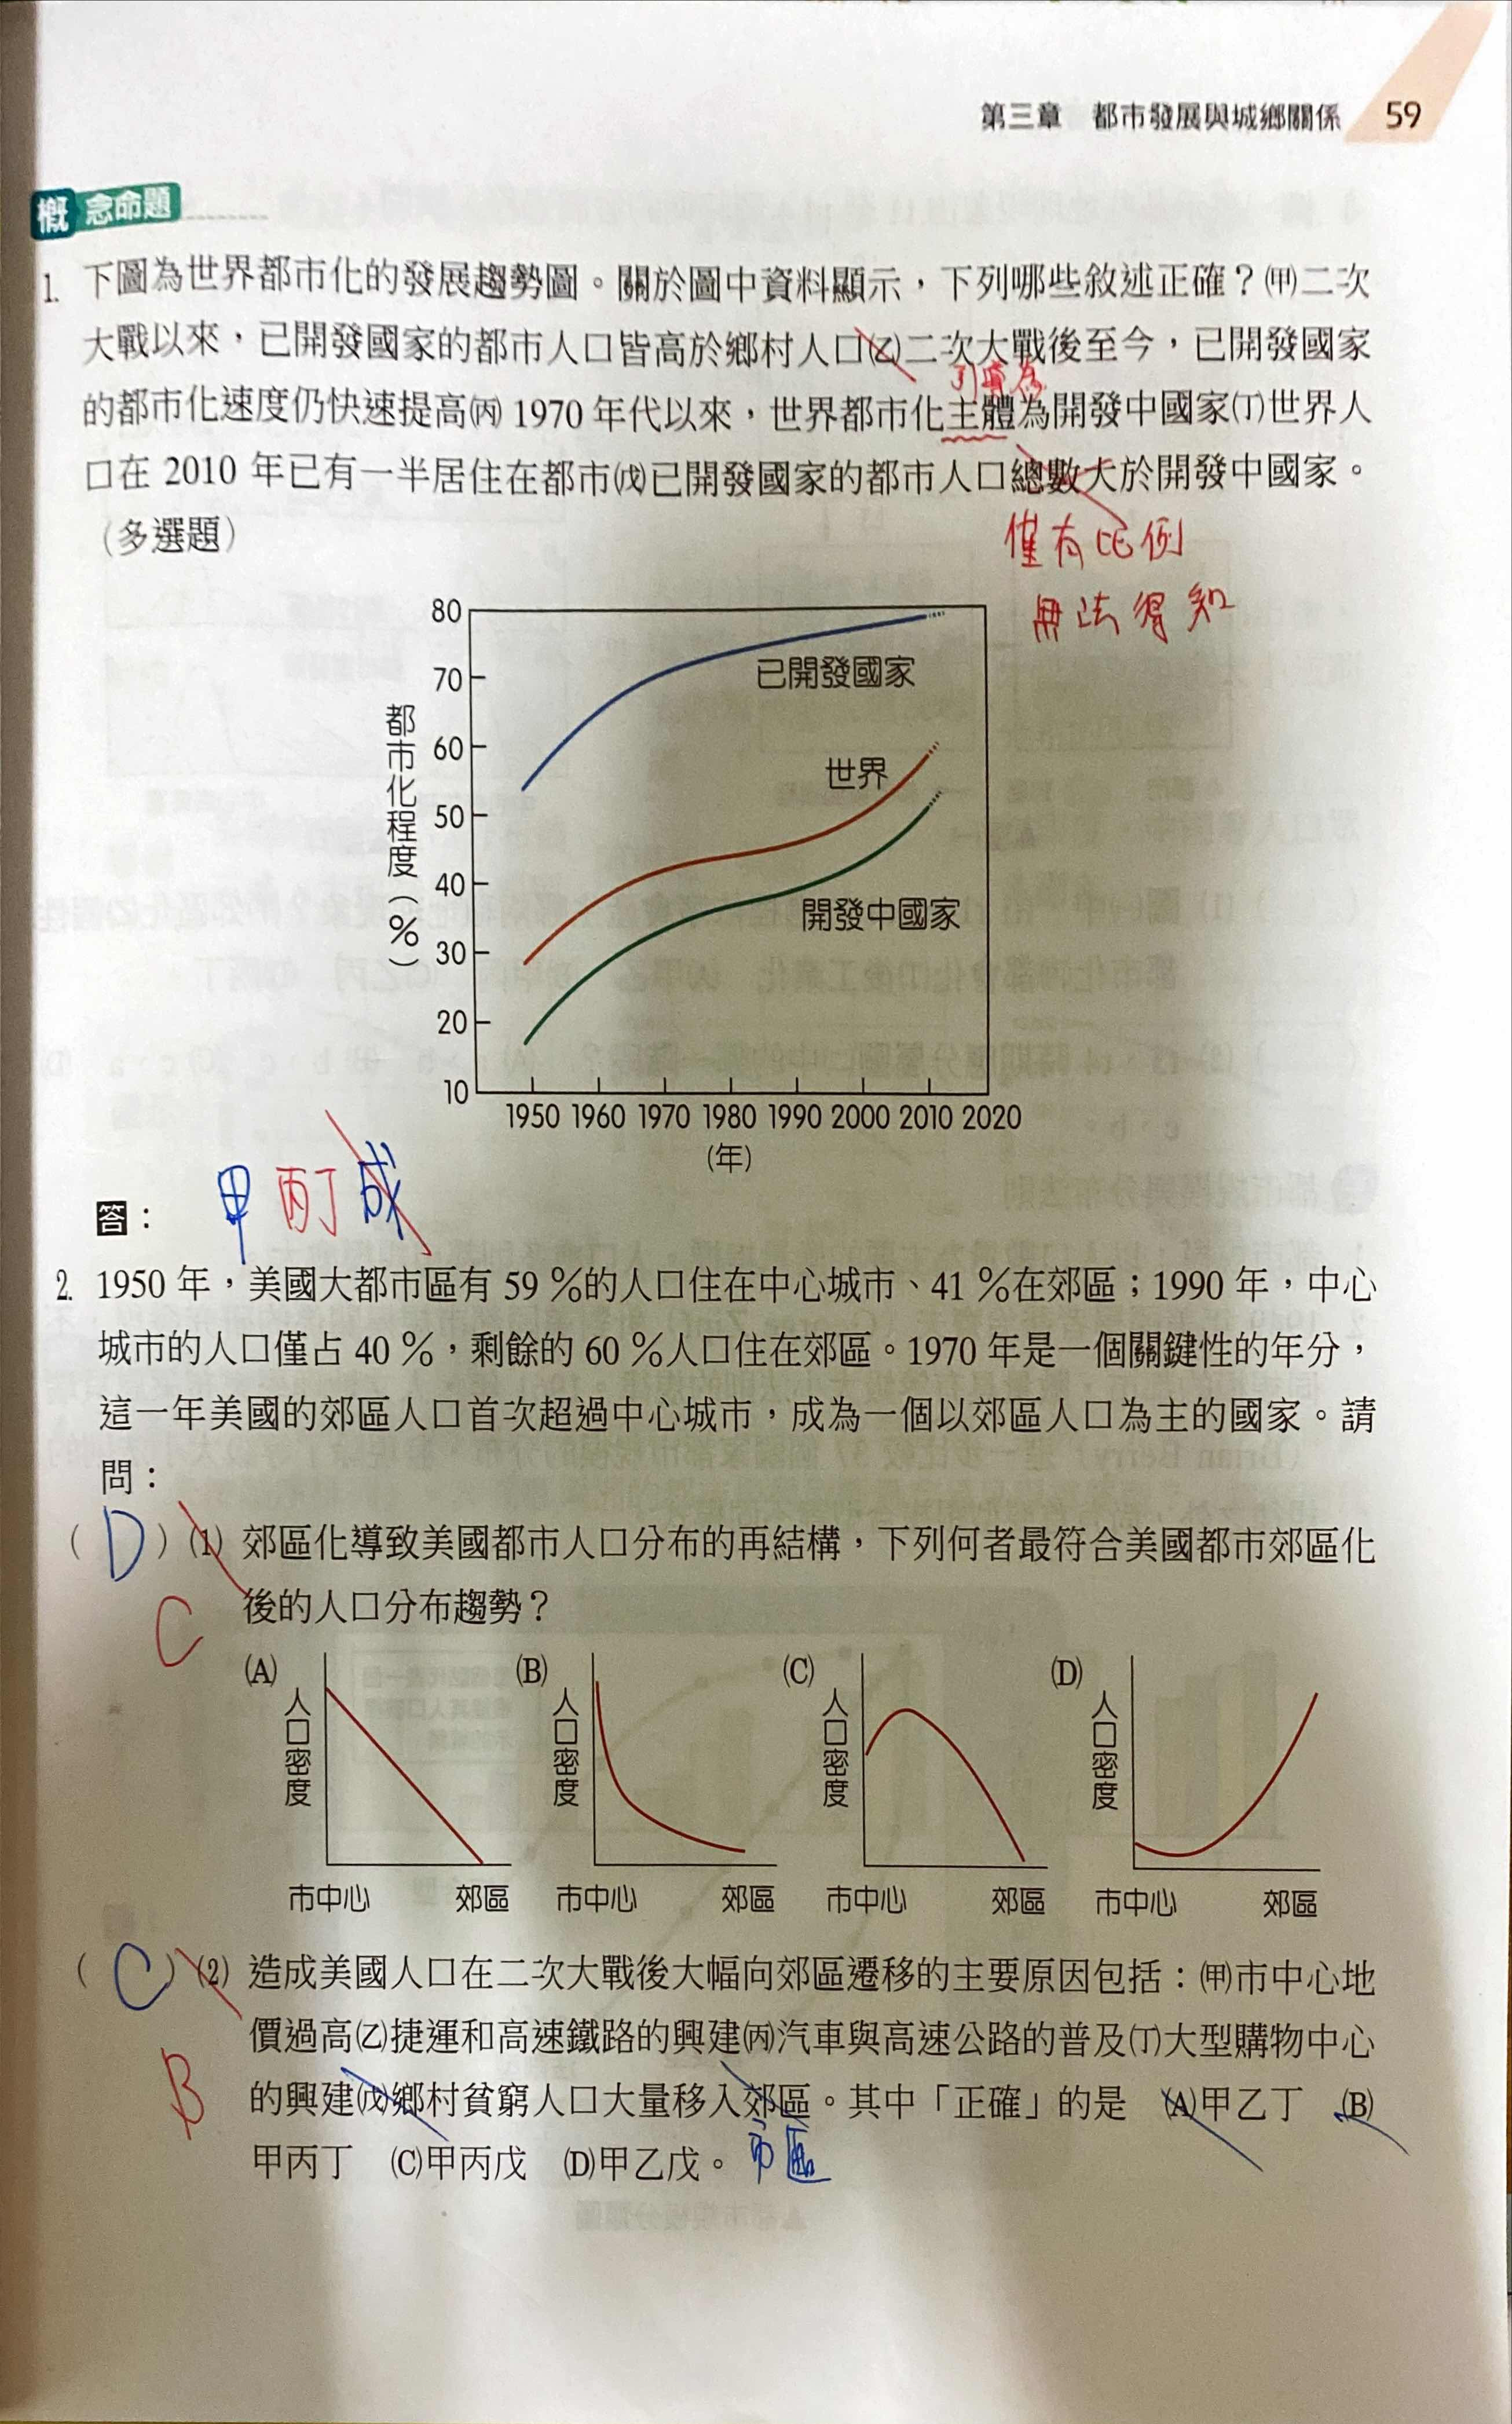 第三章 都市發展與城鄉關係 59
概念命題
1. 下圖為世界都市化的發展趨勢圖。關於圖中資料顯示，下列哪些敘述正確？㈙二次
大戰以來，已開發國家的都市人口皆高於鄉村人口(乙)二次大戰後至今，已開發國家
的都市化速度仍快速提高(丙)1970 年代以來，世界都市化主體為開發中國家(丁)世界人
口在 2010 年已有一半居住在都市(戊)已開發國家的都市人口總數大於開發中國家。
（多選題）
僅有比例
無法得知
80
70
60
50
40
30
20
10
都市化程度（%）
已開發國家
世界
開發中國家
1950 1960 1970 1980 1990 2000 2010 2020
(年)
答： 甲 丙丁 戊
2. 1950 年，美國大都市區有 59 %的人口住在中心城市、41 %在郊區；1990 年，中心
城市的人口僅占 40 %，剩餘的 60 %人口住在郊區。1970 年是一個關鍵性的年分，
這一年美國的郊區人口首次超過中心城市，成為一個以郊區人口為主的國家。請
問：
( D ) (1) 郊區化導致美國都市人口分布的再結構，下列何者最符合美國都市郊區化
C 後的人口分布趨勢？
(A) 人口密度 市中心 郊區
(B) 人口密度 市中心 郊區
(C) 人口密度 市中心 郊區
(D) 人口密度 市中心 郊區
( C ) (2) 造成美國人口在二次大戰後大幅向郊區遷移的主要原因包括：(甲)市中心地
價過高(乙)捷運和高速鐵路的興建(丙)汽車與高速公路的普及(丁)大型購物中心
B 的興建(戊)鄉村貧窮人口大量移入郊區。其中「正確」的是 (A)甲乙丁 (B)
甲丙丁 (C)甲丙戊 (D)甲乙戊。 市區